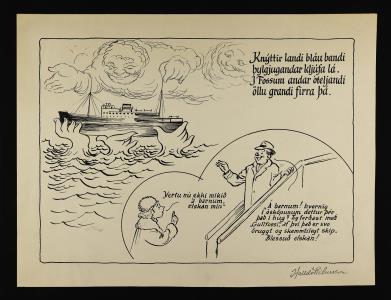 Knýttir landi bláu bandi
bylgjugandar kljúfa lá.
Í Fossum andar óteljandi
öllu grandi firra þá.
Vertu nú ekki mikið
á bernum,
elskan mín!
Á bernum! hvernig
í ósköpunum dettur þér
það í hug? Ég ferðast með
"Gullfossi", af því það er svo
öruggt og skemmtilegt skip.
Blessuð elskan!